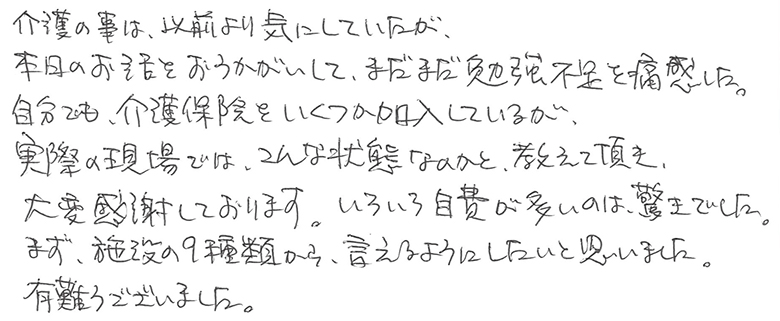 介護の事は、以前より気にしていたが、
本日のお話をおうかがいして、まだまだ勉強不足を痛感した。
自分でも、介護保険をいくつか加入しているが、
実際の現場では、こんな状態なのかと、教えて頂き、
大変感謝しております。いろいろ自費が多いのは、驚きでした。
まず、施設の9種類から、言えるようにしたいと思いました。
有難うございました。